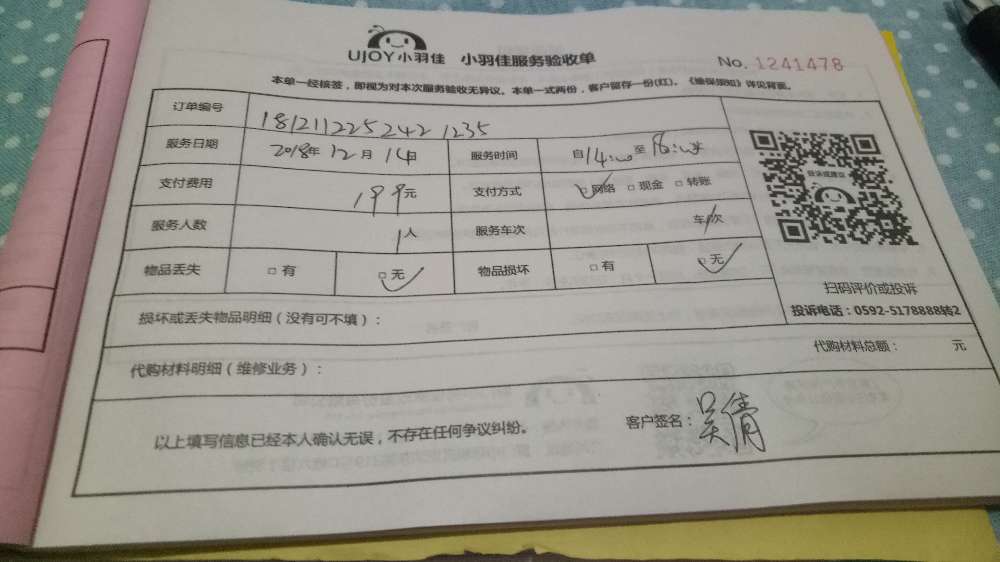 UJOY小羽佳 小羽佳服务验收单 No. 1241478
本单一经核签，即视为对本次服务验收无异议。本单一式两份，客户留存一份(红)。《维保须知》详见背面。
订单编号 181211225242 1235
服务日期 2018年 12月 14日 服务时间 自14:00至16:00
支付费用 199元 支付方式 □网络 □现金 □转账
服务人数 1人 服务车次 车/次
物品丢失 □有 □无 物品损坏 □有 □无
投诉或建议
扫码评价或投诉
投诉电话：0592-5178888转2
损坏或丢失物品明细（没有可不填）：
代购材料明细（维修业务）： 代购材料总额： 元
以上填写信息已经本人确认无误，不存在任何争议纠纷。 客户签名：吴倩